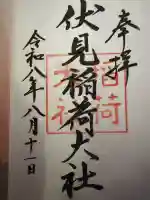 奉拝
伏見稲荷大社
稲荷
大社
令和八年八月十一日